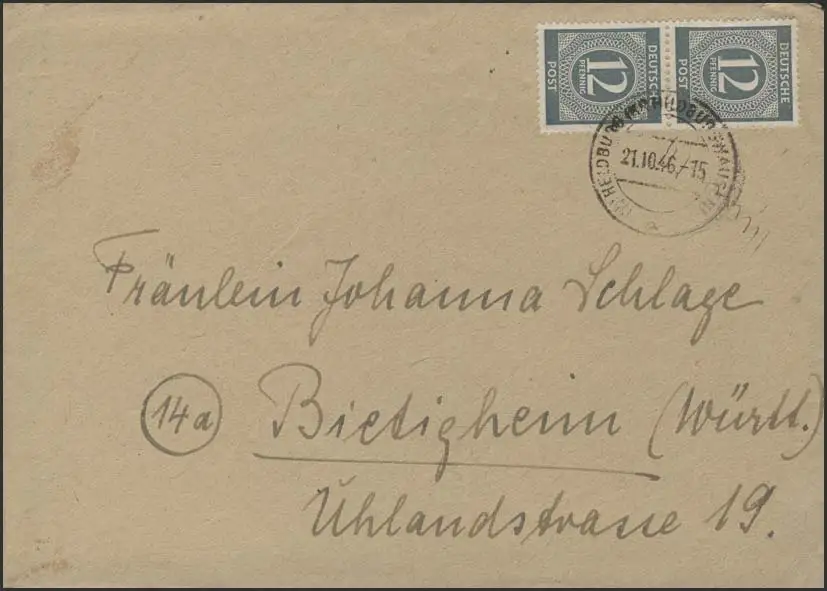 DEUTSCHE
12
PFENNIG
POST
DEUTSCHE
12
PFENNIG
POST
HELDBURG
21.10.46.-15
Fräulein Johanna Schlage
14a Bietigheim (Württ.)
Uhlandstrasse 19.